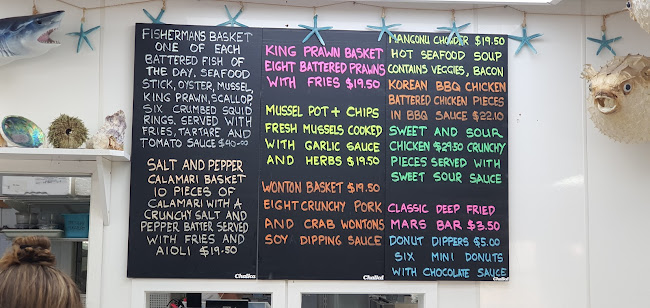 FISHERMANS BASKET
ONE OF EACH
BATTERED FISH OF
THE DAY. SEAFOOD
STICK, OYSTER, MUSSEL
KING PRAWN, SCALLOP
SIX CRUMBED SQUID
RINGS. SERVED WITH
FRIES, TARTARE AND
TOMATO SAUCE $40.00
SALT AND PEPPER
CALAMARI BASKET
10 PIECES OF
CALAMARI WITH A
CRUNCHY SALT AND
PEPPER BATTER SERVED
WITH FRIES AND
AIOLI $19.50
Chalka
KING PRAWN BASKET
EIGHT BATTERED PRAWNS
WITH FRIES $19.50
MUSSEL POT + CHIPS
FRESH MUSSELS COOKED
WITH GARLIC SAUCE
AND HERBS $19.50
WONTON BASKET $19.50
EIGHT CRUNCHY PORK
AND CRAB WONTONS
SOY DIPPING SAUCE
Chalka
MANGONU CHOWDER $19.50
HOT SEAFOOD SOUP
CONTAINS VEGGIES, BACON
KOREAN BBQ CHICKEN
BATTERED CHICKEN PIECES
IN BBQ SAUCE $22.10
SWEET AND SOUR
CHICKEN $29.50 CRUNCHY
PIECES SERVED WITH
SWEET SOUR SAUCE
CLASSIC DEEP FRIED
MARS BAR $3.50
DONUT DIPPERS $5.00
SIX MINI DONUTS
WITH CHOCOLATE SAUCE
Chalka